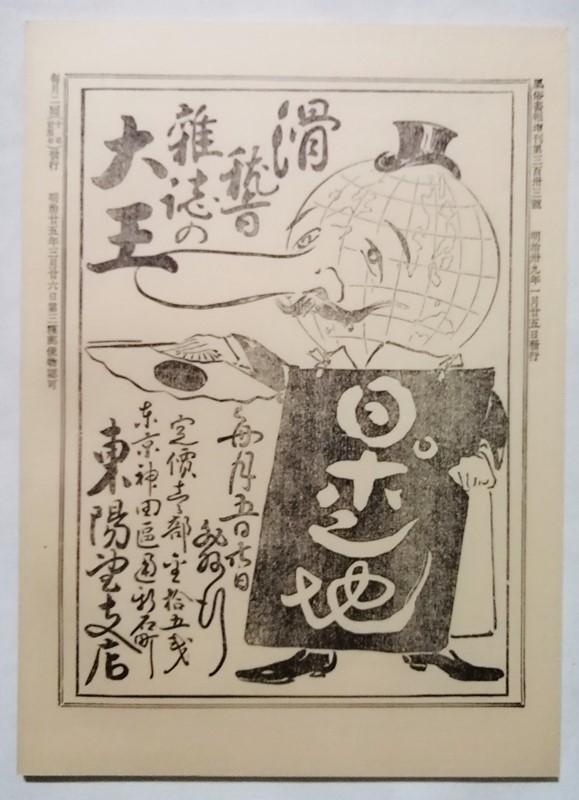 風俗畫報増刊第三百卅三號 明治卅九年一月廿五日發行
滑稽
雜誌の
大王
日ポン地
毎月五日廿日
發行
定價壱部金拾五戔
東京神田區通新石町
東陽堂支店
毎月二回 發行 明治廿五年三月廿六日第三種郵便物認可